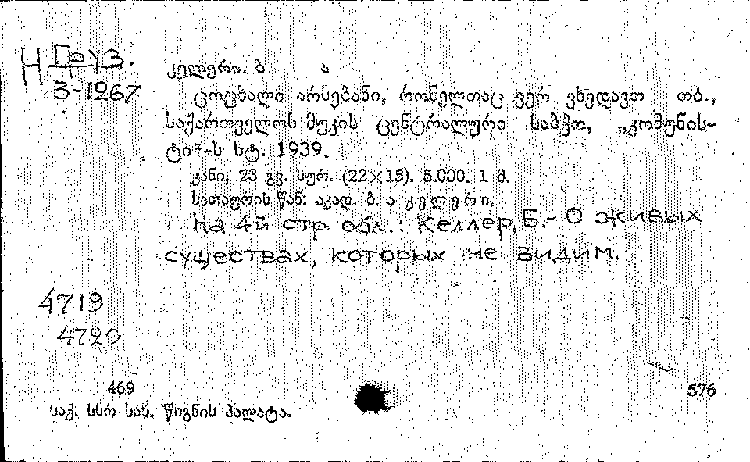 Н Груз.
3-1267
კელერი. ბ ა
ცოცხალი არსებანი, რომელთაც ვერ ვხედავთ თბ.,
საქართველოს მუკის ცენტრალური საბჭო, „კომუნის-
ტი"-ს სტ. 1939.
კანი. 23 გვ. სურ. (22×15). 5.000. 1 მ.
სათაურის წინ: აკად. ბ. ა კელერი.
На 4й стр. обл.: Келлер, Б. - О живых
существах, которых не видим.
4719
4720
469 576
საქ. სსრ სახ. წიგნის პალატა.